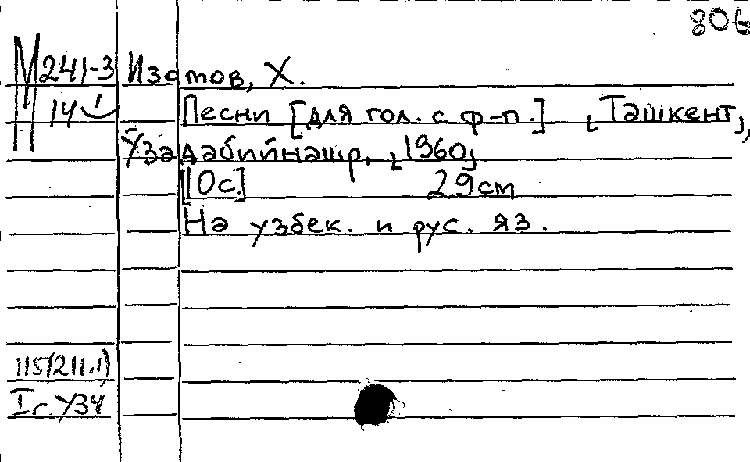 806
М241-3 Изатов, Х.
14
Песни [для гол. с ф-п.] [Ташкент],
Узадабийнашр, [1960]
[10с.] 29см
На узбек. и рус. яз.
Iс. УЗ4